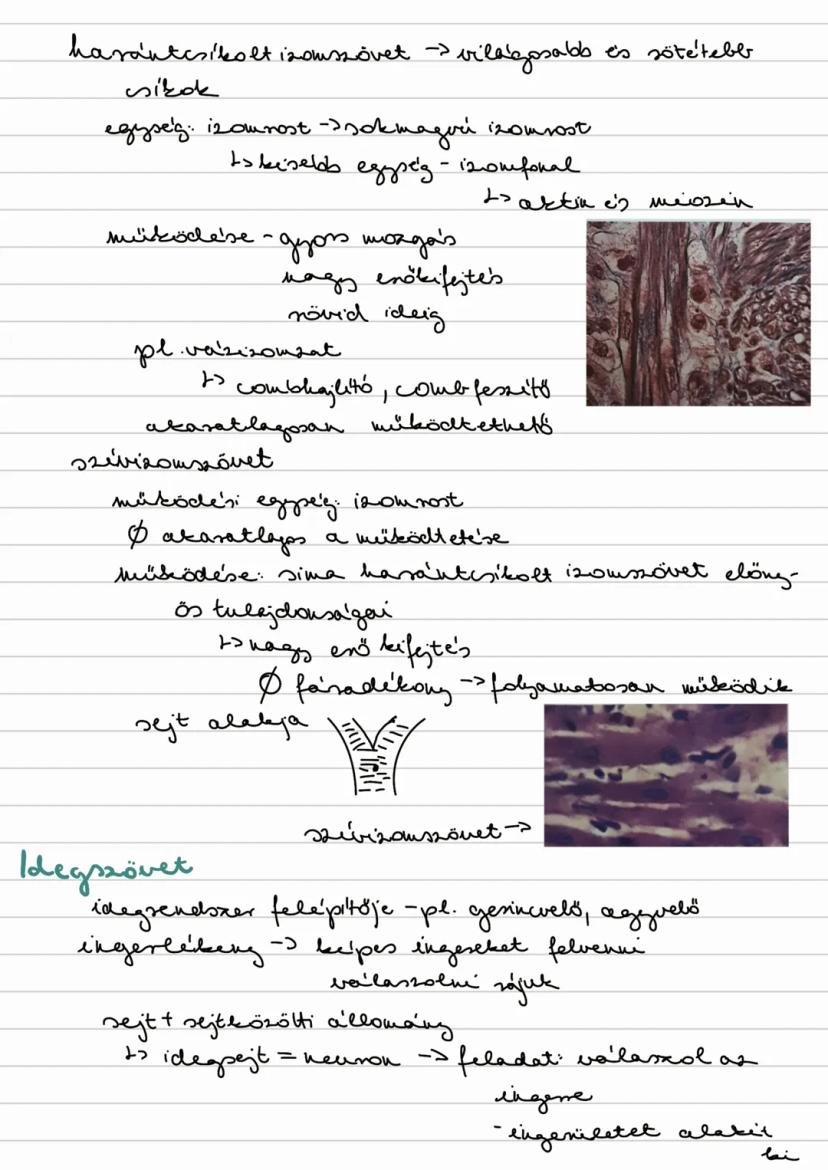 harántcsíkolt izomszövet -> világosabb és sötétebb
csíkok
egység: izomrost -> sokmagvú izomrost
↳ kisebb egység - izomfonal
↳ aktin és miozin
működése - gyors mozgás
nagy erőkifejtés
rövid ideig
pl. vázizomzat
↳ combhajlító, combfeszítő
akaratlagosan működtethető
szívizomszövet
működési egység: izomrost
Ø akaratlagos a működtetése
működése: sima harántcsíkolt izomszövet előny-
ös tulajdonságai
↳ nagy erő kifejtés
Ø fáradékony -> folyamatosan működik
sejt alakja
szívizomszövet ->
Idegszövet
idegrendszer felépítője - pl. gerincvelő, agyvelő
ingerlékeny -> képes ingereket felvenni
válaszolni rájuk
sejt + sejtközötti állomány
↳ idegsejt = neuron -> feladat: válaszol az
ingerre
- ingerületet alakít
ki